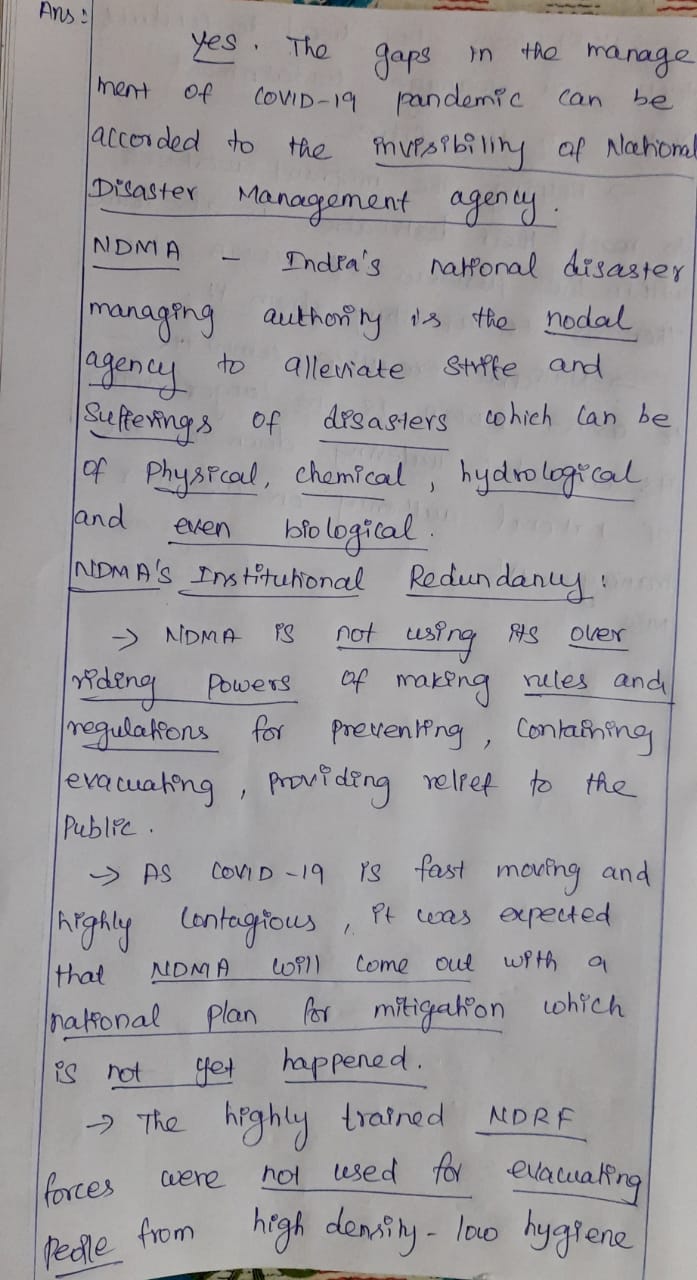 Ans:
Yes. The gaps in the manage
ment of COVID-19 pandemic can be
accorded to the invisibility of National
Disaster Management agency.
NDMA - India's national disaster
managing authority is the nodal
agency to alleviate strife and
sufferings of disasters which can be
of Physical, chemical, hydrological
and even biological.
NDMA's Institutional Redundancy:
→ NDMA is not using its over
riding powers of making rules and
regulations for preventing, containing
evacuating, providing relief to the
Public.
→ As COVID-19 is fast moving and
highly contagious, it was expected
that NDMA will come out with a
national plan for mitigation which
is not yet happened.
→ The highly trained NDRF
forces were not used for evacuating
Peole from high density - low hygiene